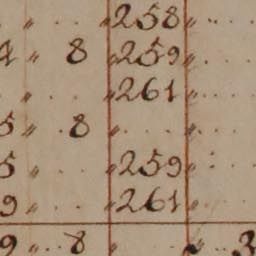 " . . . " 258 " . . .
4 " 8 " 259 " . . .
" . . . " 261 " . . .
5 " . 8 " . . . . " . . .
5 " . . . 259 " . . .
9 " . . . " 261 " . . .
9 " . . 8 " . . . . " . . 3